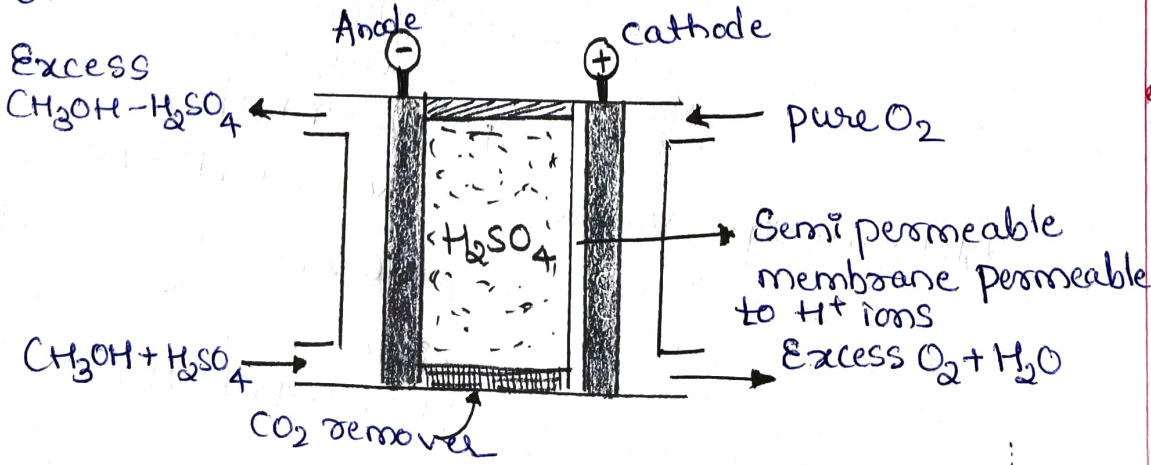 Anode
Cathode
-
+
Excess
CH₃OH-H₂SO₄
pure O₂
H₂SO₄
Semi permeable
membrane permeable
to H⁺ ions
CH₃OH + H₂SO₄
Excess O₂ + H₂O
CO₂ remover